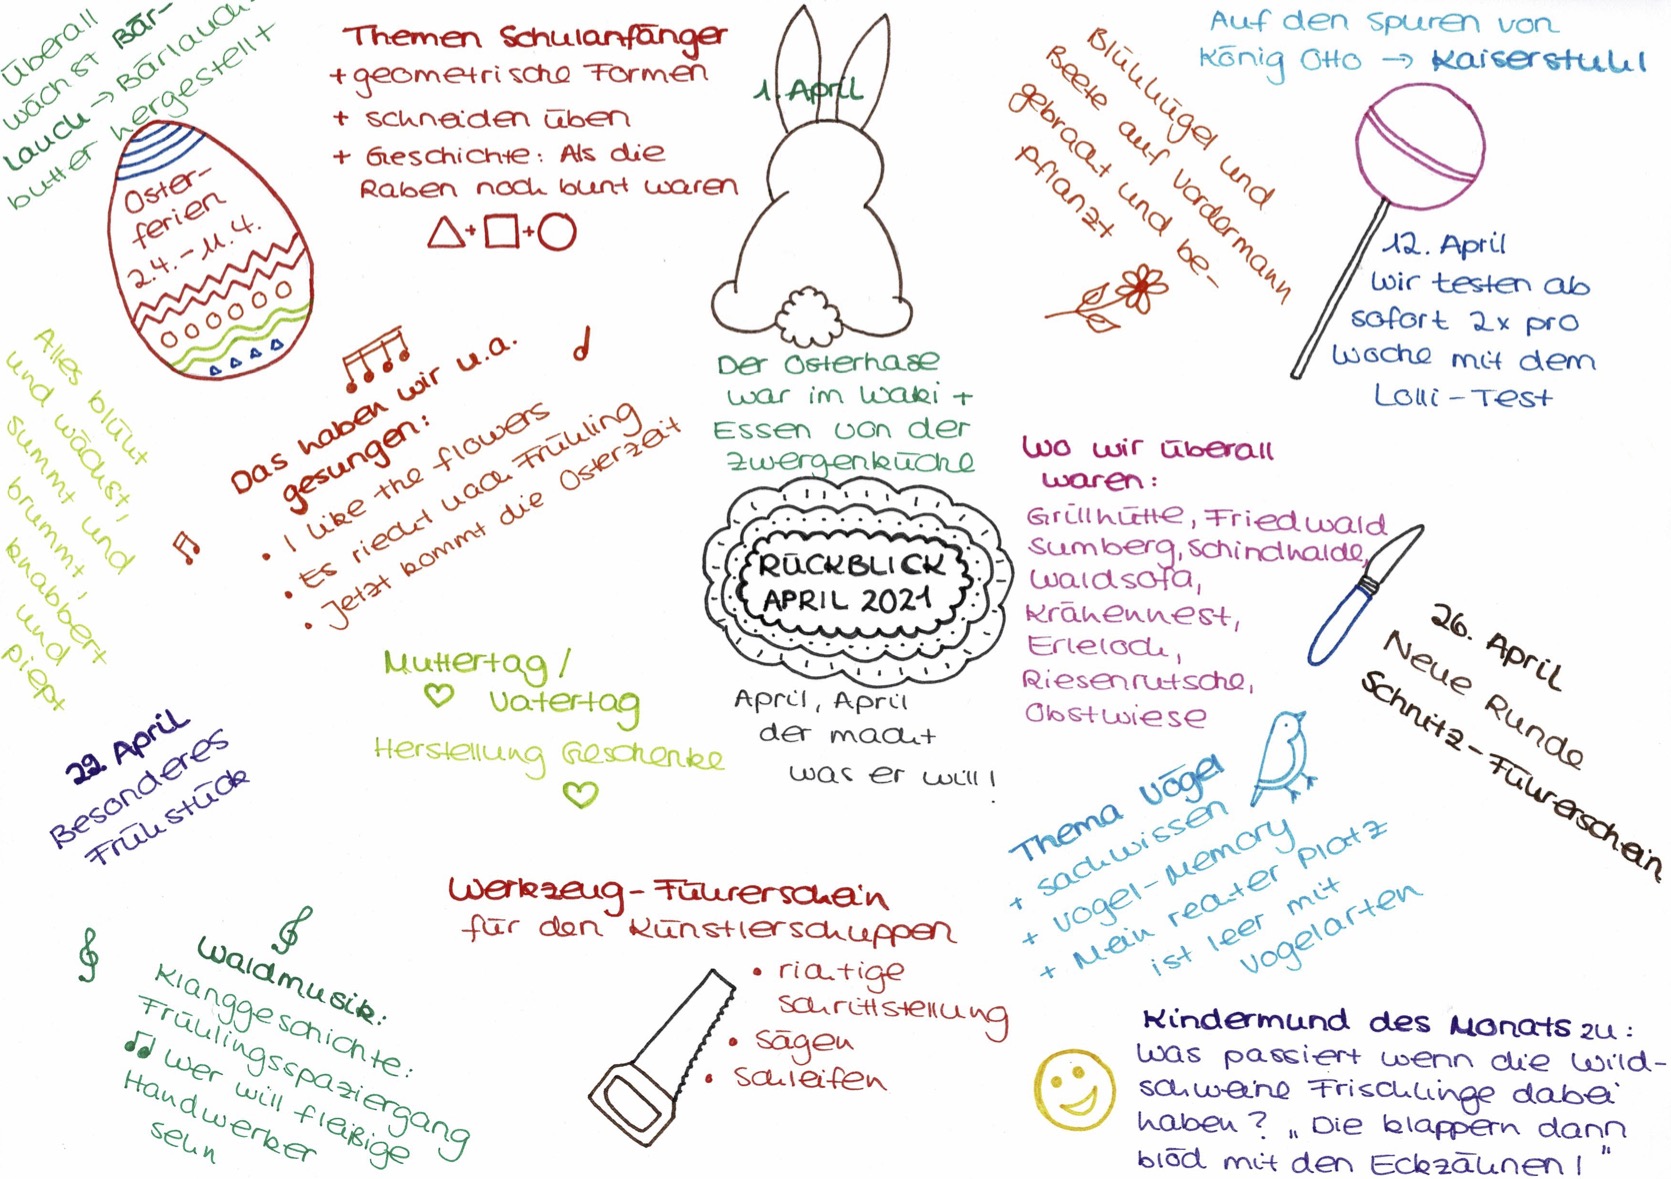 Überall
wächst Bär-
lauch → Bärlauch-
butter hergestellt
Oster-
ferien
2.4.-11.4.
Themen Schulanfänger
+ geometrische Formen
+ schneiden üben
+ Geschichte: Als die
Raben noch bunt waren
+ +
1. April
Der Osterhase
war im Waki +
Essen von der
Zwergenküche
Blühhügel und
Beete auf Vordermann
gebracht und be-
pflanzt
Auf den Spuren von
König Otto → Kaiserstuhl
12. April
Wir testen ab
sofort 2x pro
Woche mit dem
Lolli-Test
Alles blüht
und wächst,
summt und
brummt,
knabbert
und
piept
Das haben wir u.a.
gesungen:
• I like the flowers
• Es riecht nach Frühling
• Jetzt kommt die Osterzeit
RÜCKBLICK
APRIL 2021
April, April
der macht
was er will!
Wo wir überall
waren:
Grillhütte, Friedwald
Sumberg, Schindhalde,
Waldsofa,
Krähennest,
Erleloch,
Riesenrutsche,
Obstwiese
26. April
Neue Runde
Schnitz-Führerschein
Muttertag/
Vatertag
Herstellung Geschenke
Besonderes
Frühstück
April
Thema Vögel
+ Sachwissen
+ Vogel-Memory
+ Mein rechter Platz
ist leer mit
Vogelarten
Werkzeug-Führerschein
für den Künstlerschuppen
• richtige
Schrittstellung
• sägen
• schleifen
Waldmusik:
Klanggeschichte:
Frühlingsspaziergang
♫ Wer will fleißige
Handwerker
sehn
Kindermund des Monats zu:
Was passiert wenn die Wild-
schweine Frischlinge dabei
haben? „Die klappern dann
blöd mit den Eckzäunen!"